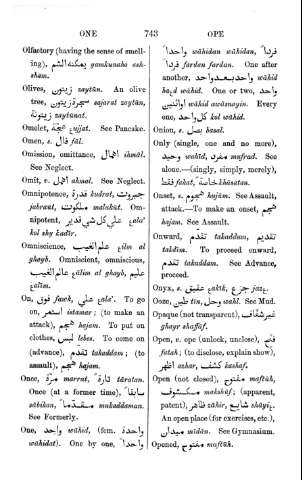 ONE 743 OPE
Olfactory (having the sense of smell-
ing), يمكنه الشم yamkunaho esh-
sham.
Olives, زيتون zaytūn. An olive
tree, سجرة زيتون sajarat zaytūn,
زيتونة zaytūnat.
Omelet, عجّة ɛujjat. See Pancake.
Omen, s. فال fāl.
Omission, omittance, اهمال ihmāl.
See Neglect.
Omit, v. اهمل ahmal. See Neglect.
Omnipotence, قدرة kudrat, جبروت
jabraut, ملكوت malakūt. Om-
nipotent, علي كل شي قدير ɛala'
kol shy kadīr.
Omniscience, علم الغيب ɛilm al
ghayb. Omniscient, omniscious,
عالم الغيب ɛālim al ghayb, عليم
ɛalīm.
On, فوق fawk, علي ɛala'. To go
on, استمر istamar; (to make an
attack), هجم hajam. To put on
clothes, لبس lebes. To come on
(advance), تقدم takaddam; (to
assault), هجم hajam.
Once, مرة marrat, تارة tāratan.
Once (at a former time), سابقا
sābikan, مقدما mukaddaman.
See Formerly.
One, واحد wāhid, (fem. واحدة
wāhidat). One by one, واحدا
فردا wāhidan wāhidan, واحدا
فردا fardan fardan. One after
another, واحد بعد واحد wāhid
baɛd wāhid. One or two, واحد
او اثنين wāhid awasnayin. Every
one, كل واحد kol wāhid.
Onion, s. بصل basal.
Only (single, one and no more),
وحيد wahīd, مفرد mafrad. See
alone.—(singly, simply, merely),
فقط fakat, خاصة khāsatan.
Onset, s. هجوم hajūm. See Assault,
attack.—To make an onset, هجم
hajam. See Assault.
Onward, تقدم takaddum, تقديم
takdīm. To proceed onward,
تقدم takaddam. See Advance,
proceed.
Onyx, s. عقيق ɛakīk, جزع jazɛ.
Ooze, طين tīn, وحل wahl. See Mud.
Opaque (not transparent), غير شفاف
ghayr shaffāf.
Open, v. ope (unclose, unclose), فتح
fatah; (to disclose, explain show),
اظهر azhar, كشف kashaf.
Open (not closed), مفتوح maftūh,
مكشوف makshūf; (apparent,
patent), ظاهر zāhir, شايع shāyiɛ.
An open place (for exercises, etc.),
ميدان mīdān. See Gymnasium.
Opened, مفتوح maftūh.